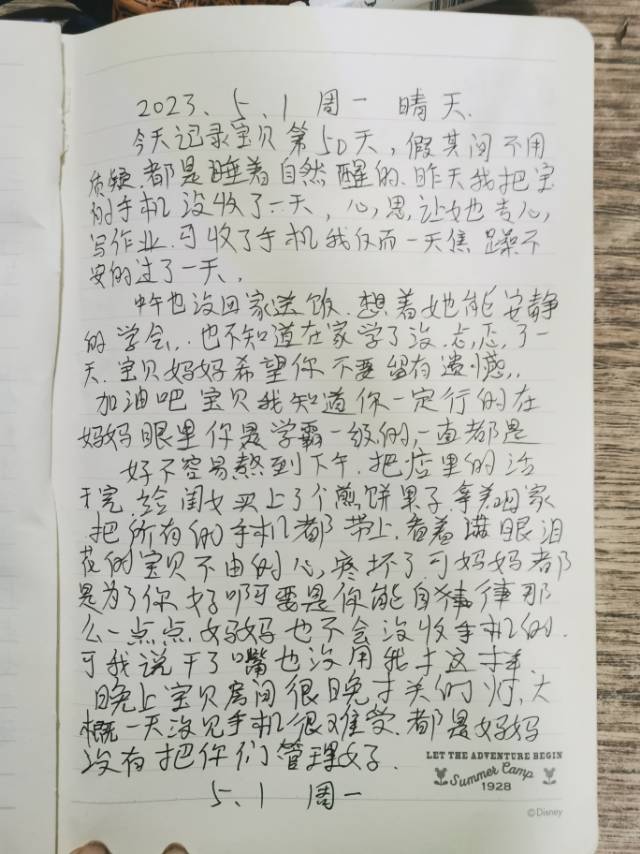 2023、5、1 周一 晴天.
今天记录宝贝第50天,假其间不用
质疑.都是睡着自然醒的.昨天我把宝
的手机没收了一天,心,思,让她专心,
写作业.可收了手机我反而一天焦躁不
安的过了一天.
中午也没回家送饭.想着她能安静
的学会..也不知道在家学了没.忐忑了一
天.宝贝妈好希望你不要留有遗憾..
加油吧宝贝我知道你一定行的在
妈妈眼里你是学霸一级的,一直都是
好不容易熬到下午.把店里的活
干完.给闺女买上了个煎饼果子.拿着回家
把所有的手机都带上.看着满眼泪
花的宝贝不由的心,疼坏了可妈妈都
是为了你好啊可要是你能自律那
么一点点.妈妈也不会没收手机的.
可我说干了嘴也没用我才这样.
晚上宝贝房间很晚才关的灯,大
概一天没见手机很难受.都是妈妈
没有把你们管理好.
5.1 周一
LET THE ADVENTURE BEGIN
Summer Camp
1928
©Disney